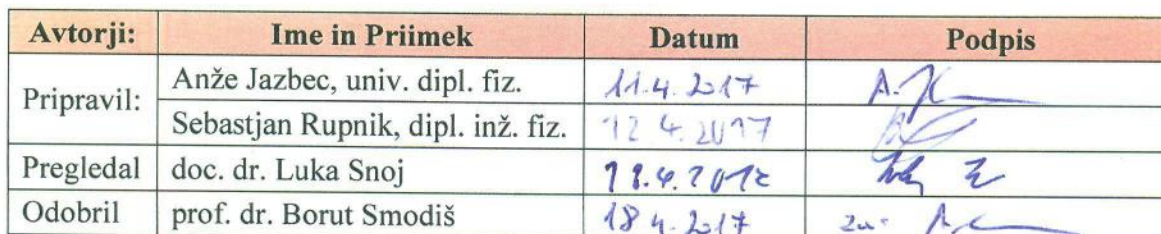 Avtorji: Ime in Priimek Datum Podpis
Pripravil: Anže Jazbec, univ. dipl. fiz. 11.4.2017
Sebastjan Rupnik, dipl. inž. fiz. 12.4.2017
Pregledal doc. dr. Luka Snoj
Odobril prof. dr. Borut Smodiš 18.4.2017